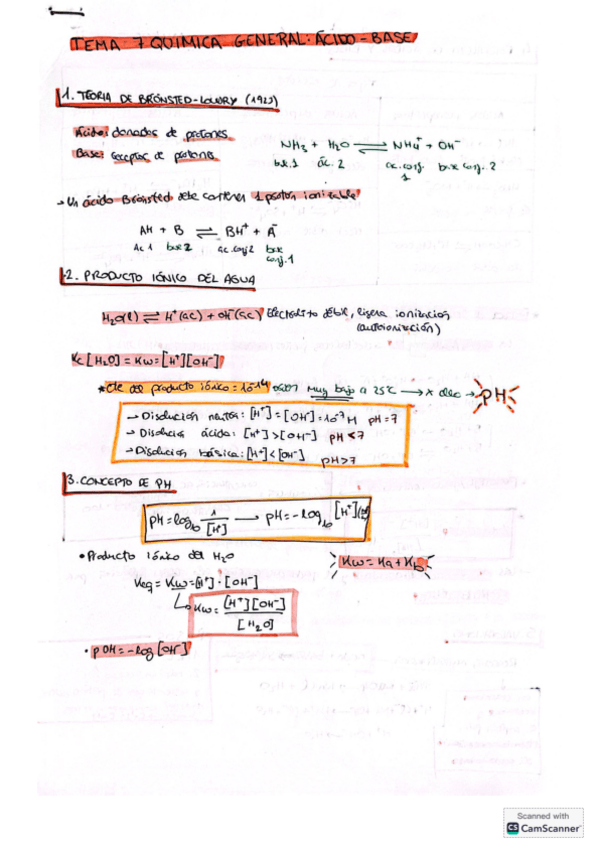 TEMA 7 QUIMICA GENERAL: ÁCIDO-BASE
1. TEORIA DE BRÖNSTED-LOWRY (1923)
Ácido: donador de protones
Base: receptor de protones
NH3 + H2O ⇌ NH4+ + OH-
base.1 ác.2 ac.conj. 1 base conj. 2
→ Un ácido Brönsted debe contener 1 proton ionizable
AH + B ⇌ BH+ + A-
Ac 1 base 2 ac.conj 2 base conj. 1
2. PRODUCTO IÓNICO DEL AGUA
H2O(l) ⇌ H+(ac) + OH-(ac) Electrolito débil, ligera ionización
(autoionización)
Kc [H2O] = Kw = [H+][OH-]
* Cte del producto iónico = 10-14 muy bajo a 25ºC → pH
→ Disolución neutra: [H+] = [OH-] = 10-7 M pH = 7
→ Disolución ácida: [H+] > [OH-] pH < 7
→ Disolución básica: [H+] < [OH-] pH > 7
3. CONCEPTO DE PH
pH = log10 1/[H+] → pH = -log10 [H+]
• Producto iónico del H2O
Kw = Ka + Kb
Keq = Kw = [H+] · [OH-]
Kw = [H+][OH-]/[H2O]
• pOH = -log [OH-]
Scanned with
CS CamScanner